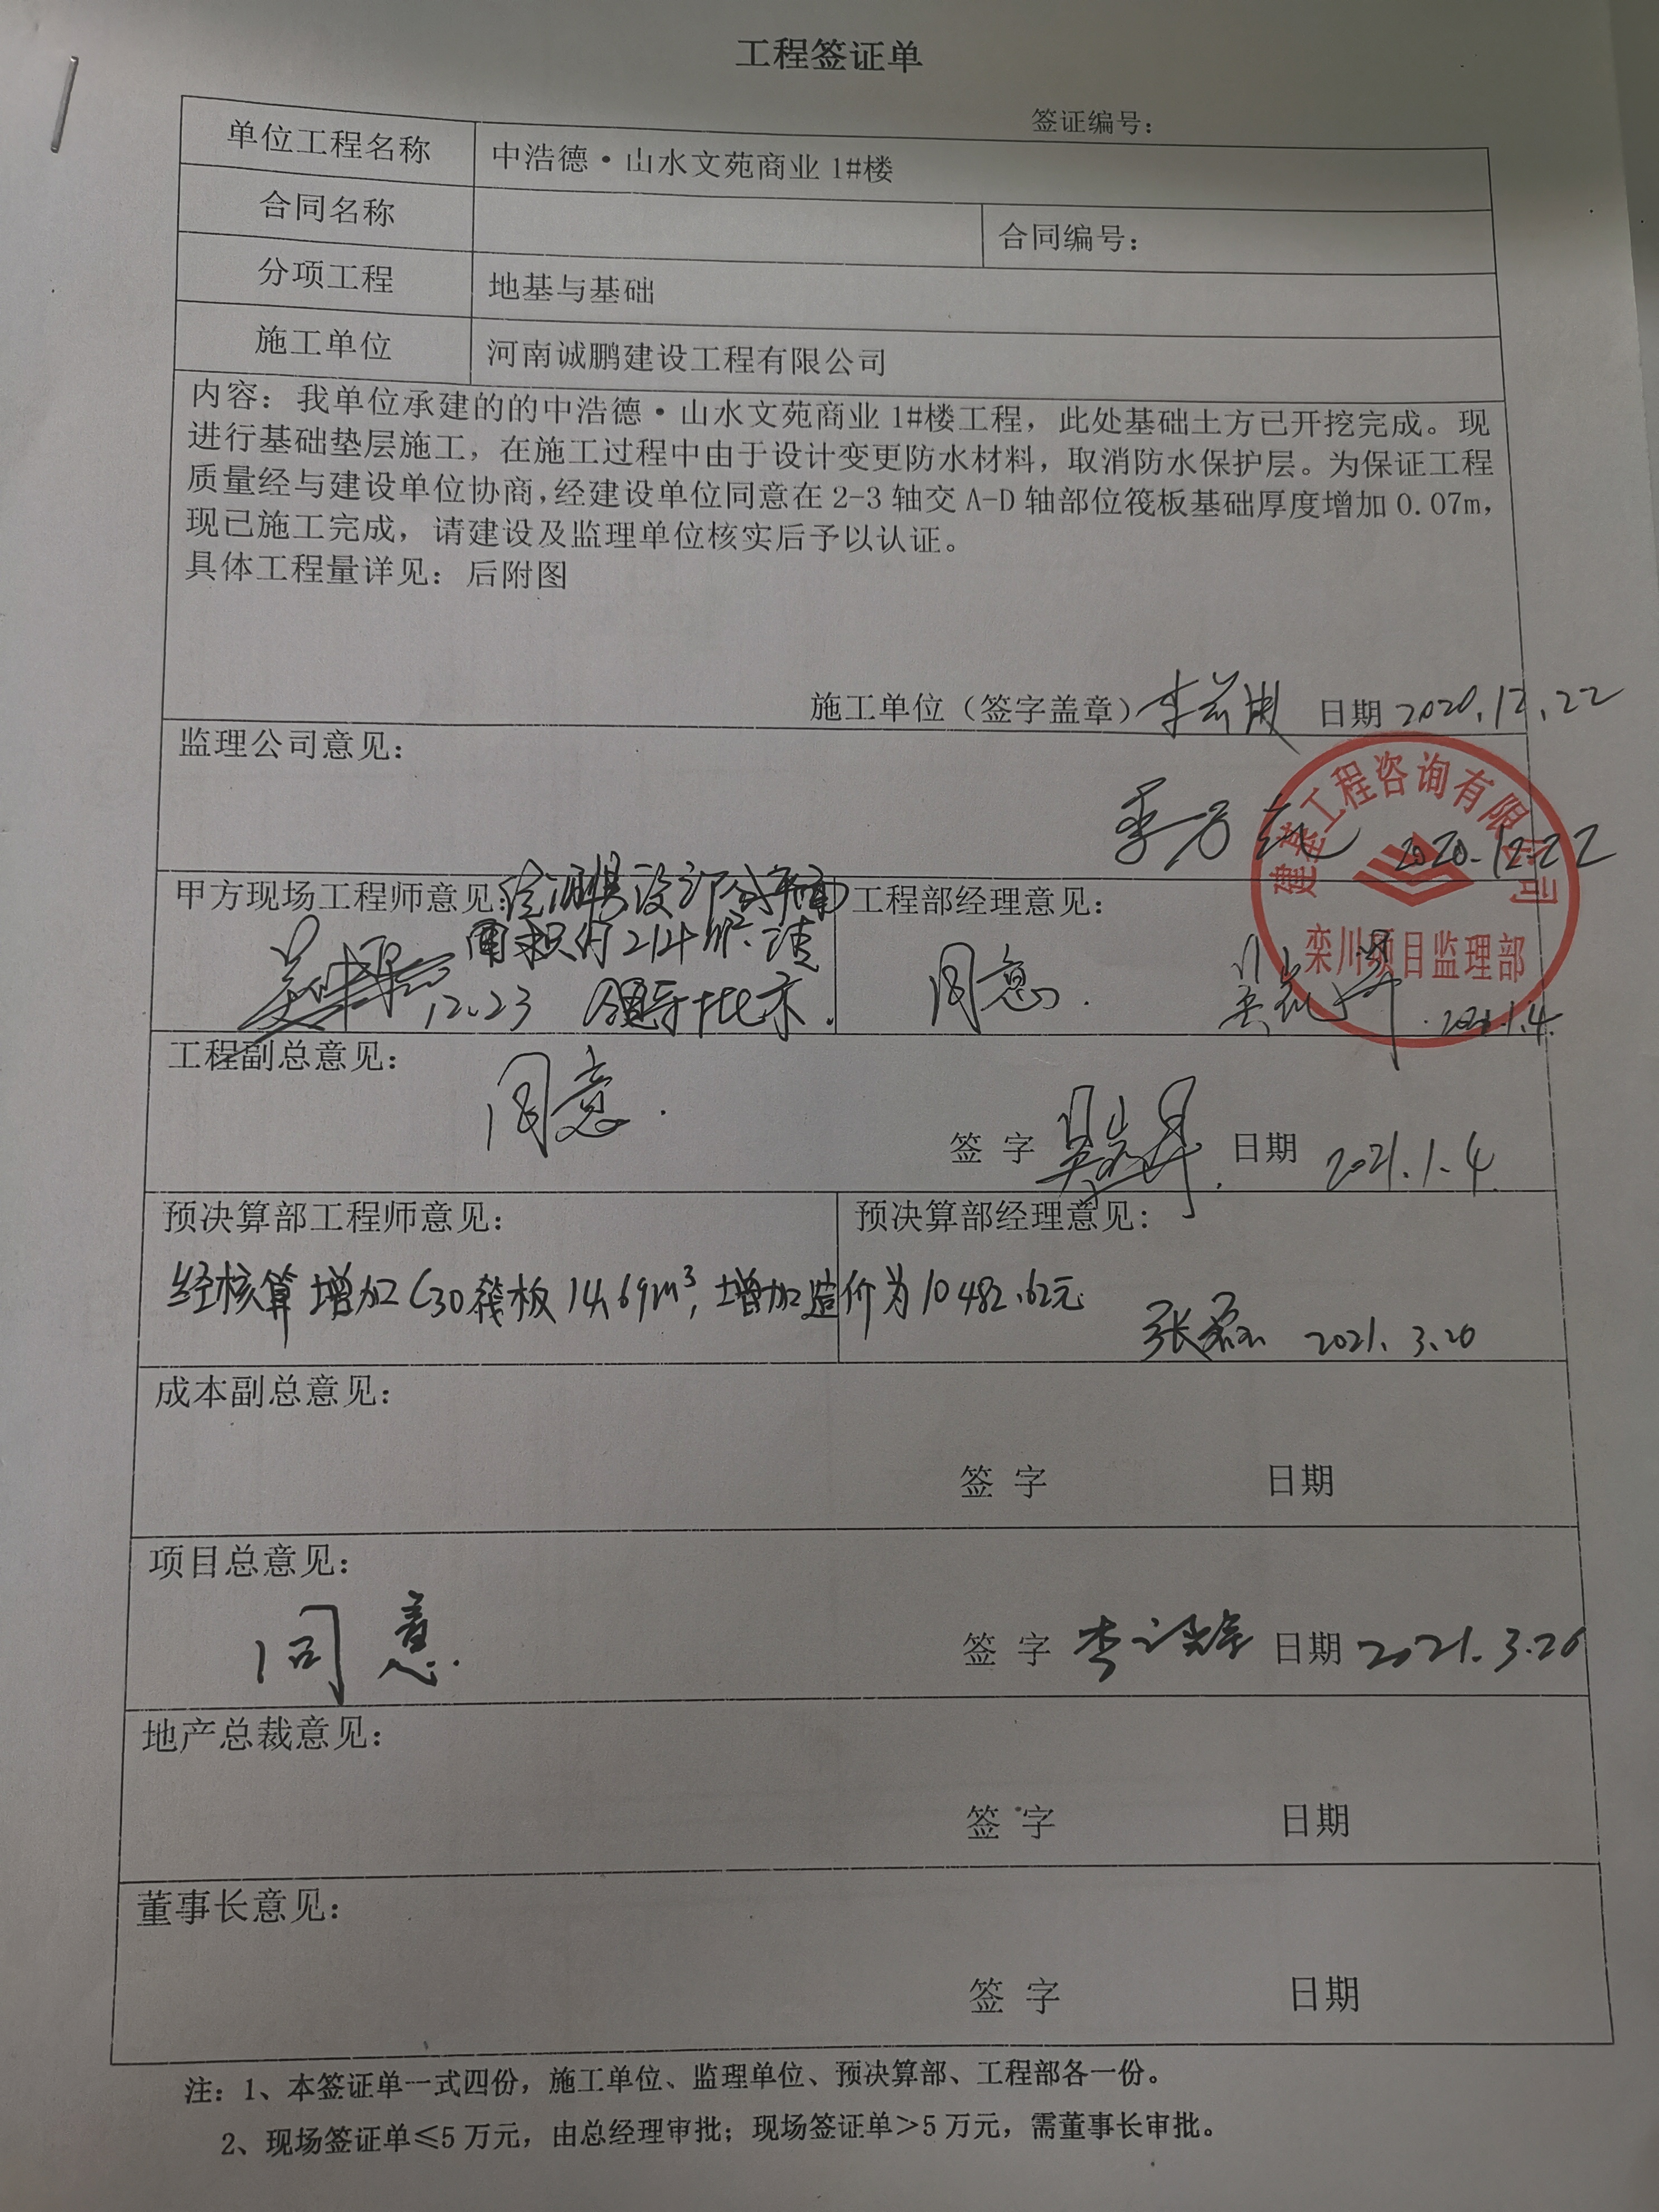 工程签证单
签证编号：
单位工程名称 中浩德·山水文苑商业 1#楼
合同名称 合同编号：
分项工程 地基与基础
施工单位 河南诚鹏建设工程有限公司
内容：我单位承建的的中浩德·山水文苑商业 1#楼工程，此处基础土方已开挖完成。现
进行基础垫层施工，在施工过程中由于设计变更防水材料，取消防水保护层。为保证工程
质量经与建设单位协商,经建设单位同意在 2-3 轴交 A-D 轴部位筏板基础厚度增加 0.07m，
现已施工完成，请建设及监理单位核实后予以认证。
具体工程量详见：后附图
施工单位（签字盖章） 日期 2020.12.22
监理公司意见：
2020.12.22
建基工程咨询有限公司
栾川项目监理部
甲方现场工程师意见： 工程部经理意见：
面积约214m².请
12.23 领导批示. 同意. 2021.1.4.
工程副总意见：
同意.
签 字 日期 2021.1.4
预决算部工程师意见： 预决算部经理意见：
经核算增加C30筏板14.69m³,增加造价为10482.62元
张磊 2021.3.20
成本副总意见：
签 字 日期
项目总意见：
同意.
签 字 日期 2021.3.20
地产总裁意见：
签 字 日期
董事长意见：
签 字 日期
注：1、本签证单一式四份，施工单位、监理单位、预决算部、工程部各一份。
2、现场签证单≤5 万元，由总经理审批；现场签证单＞5 万元，需董事长审批。